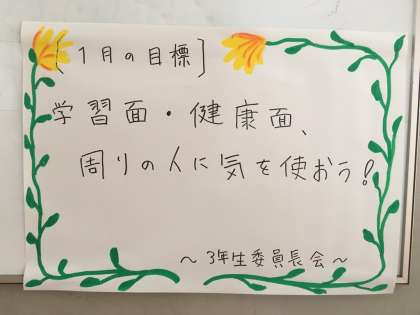 [1月の目標]
学習面・健康面、
周りの人に気を使おう!
～3年生委員長会～